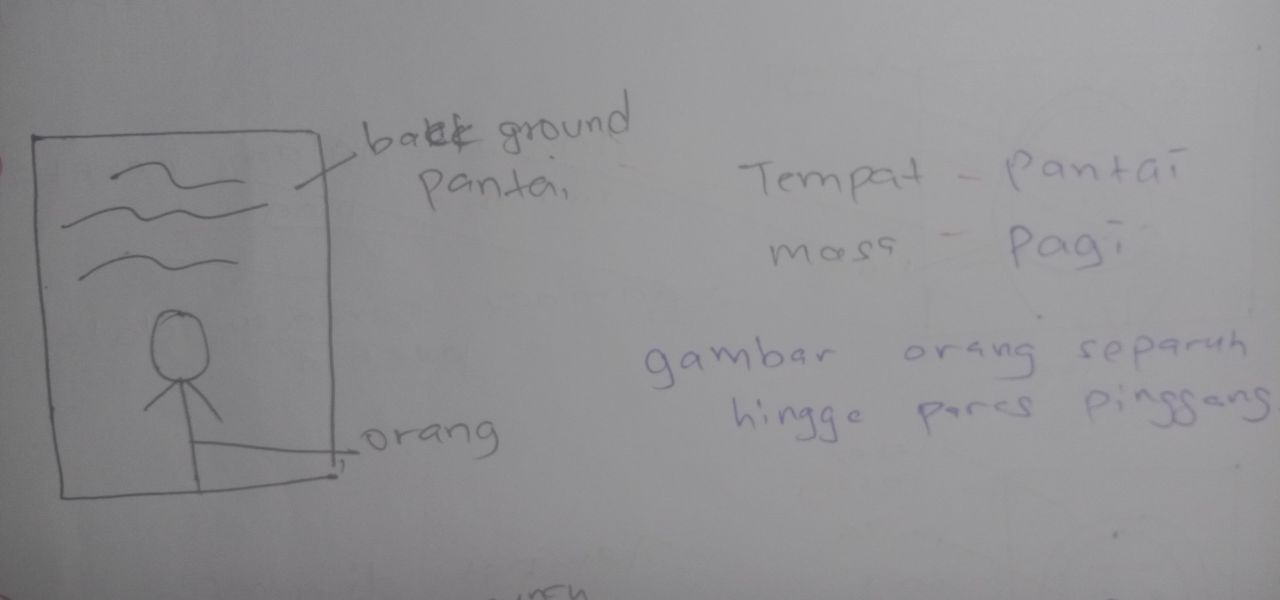 back ground
pantai
Tempat - Pantai
masa - Pagi
gambar orang separuh
hingga paras pinggang
orang